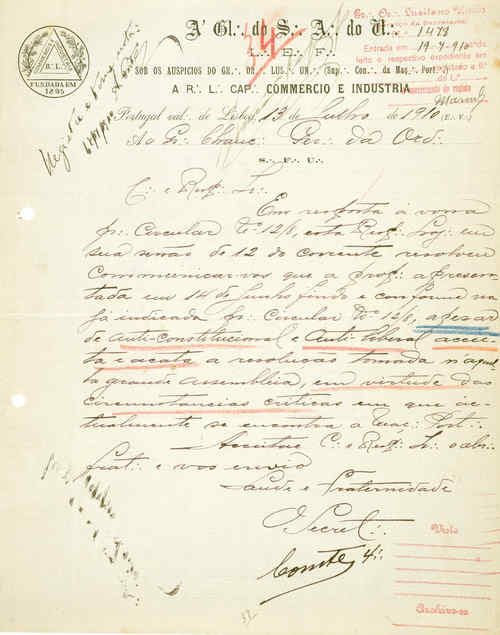 A' Gl.·. do S.·. A.·. do U.·.
L.·. E.·. F.·.
SOB OS AUSPICIOS DO GR.·. OR.·. LUS.·. UN.·. (Sup.·. Con.·. da Maç.·. Port.·.)
A R.·. L.·. CAP.·. COMMERCIO E INDUSTRIA
R.·. L.·.
FUNDADA EM
1895
34
Gr.·. Or.·. Lusitano Unido
1473
Entrada em 19-7-910
Portugal val.·. de Lisboa, 13 de Julho de 1910 (E.·. V.·.)
Ao Gr.·. Chanc.·. Ger.·. da Ord.·.
S.·. F.·. U.·.
C.·. e Resp.·. Ir.·.
Em resposta á vossa
pr.·. Circular Nº 12/, esta Resp.·. Loj.·. em
sua sessão de 12 do corrente resolveu
communicar-vos que a prop.·. apresen-
tada em 14 de Junho findo e conforme na
já indicada pr.·. Circular Nº 12/, apezar
de anti-constitucional e anti-liberal accei-
ta e acata a resolução tomada n'aquel-
la grande assembleia, em virtude das
circumstancias criticas em que ac-
tualmente se encontra a Maç.·. Port.·.
Acceitae C.·. e Resp.·. Ir.·. o abr.·.
frat.·. e vos envio
Saude e Fraternidade
O Secret.·.
Comte 4.·.
Visto
Archive-se
32